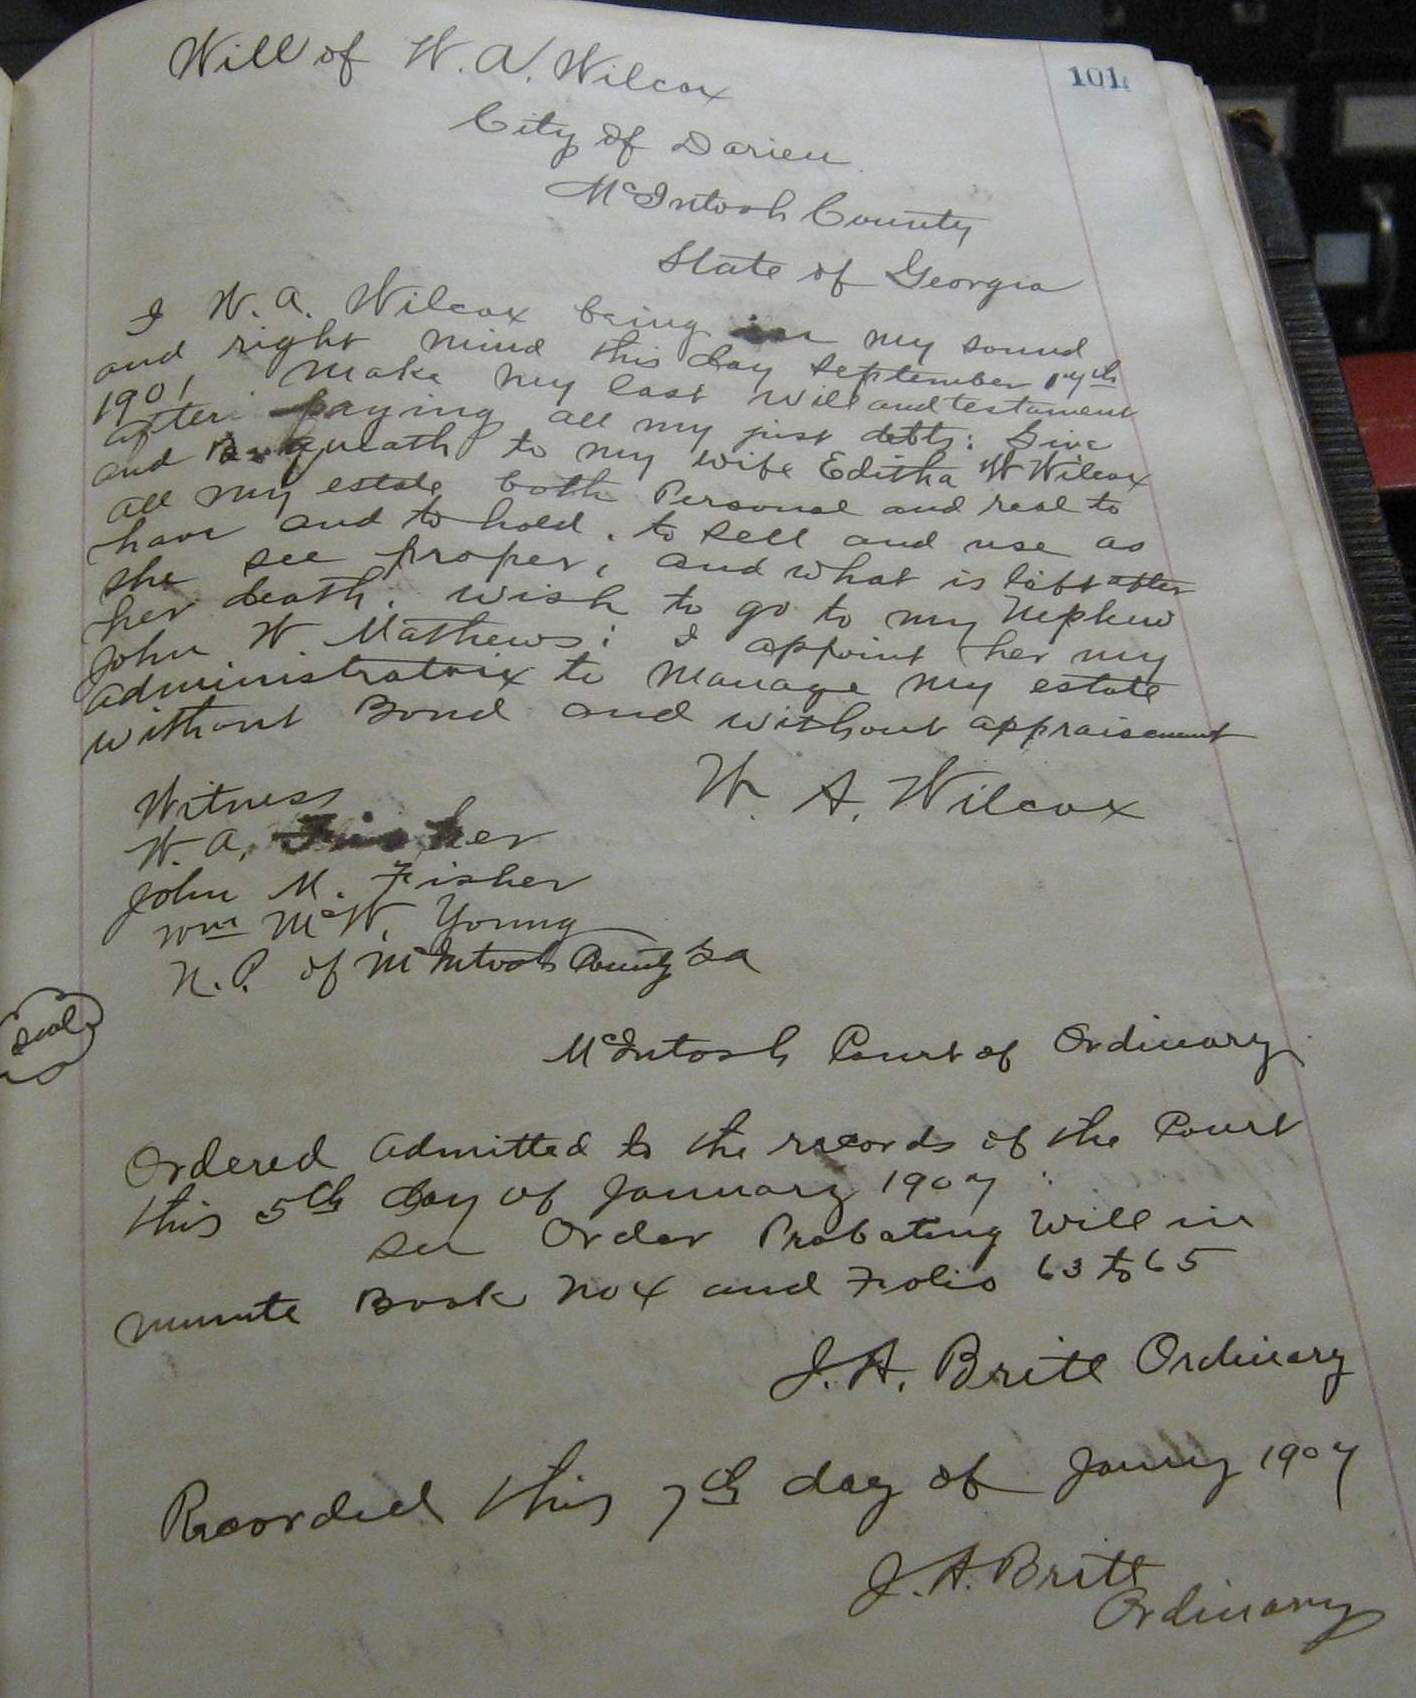 101
Will of W. A. Wilcox
City of Darien
McIntosh County
State of Georgia
I W. A. Wilcox being in my sound
and right mind this day September 17th
1901 make my last will and testament
after paying all my just debts: Give
and Bequeath to my wife Editha W Wilcox
all my estate both Personal and real to
have and to hold. to sell and use as
she see proper, and what is left after
her death. wish to go to my Nephew
John W Mathews: I appoint her my
administratrix to manage my estate
without Bond and without appraisement
W. A. Wilcox
Witness
W. A. Fisher
John M. Fisher
Wm McW. Young
N.P. of McIntosh County Ga
Seal
McIntosh Court of Ordinary
Ordered admitted to the records of the Court
this 5th day of January 1907
See Order Probating Will in
minute Book No X and Folio 63 to 65
J. A. Britt Ordinary
Recorded this 7th day of Januy 1907
J. A. Britt
Ordinary